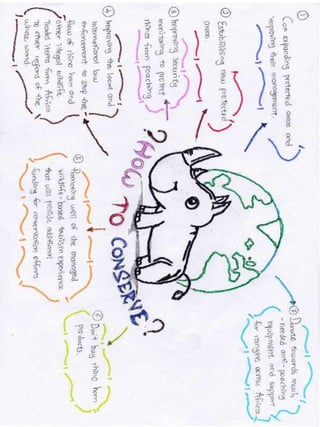 ? HOW TO CONSERVE ?
① Can expanding protected areas and
improving their management.
② Establishing new protected
areas.
③ Improving security
monitoring to protect
rhinos from poaching
④ Improving the local and
international law
enforcement to stop the
flow of rhino horn and
other illegal wildlife
trade items from Africa
to other regions of the
whole world
⑤ Don't buy rhino horn
products.
⑥ Promoting well of the managed
wildlife-based tourism experience
that will provide additional
funding for conservation efforts
⑦ Donate towards much
-needed anti-poaching
equipment and support
for rangers across Africa